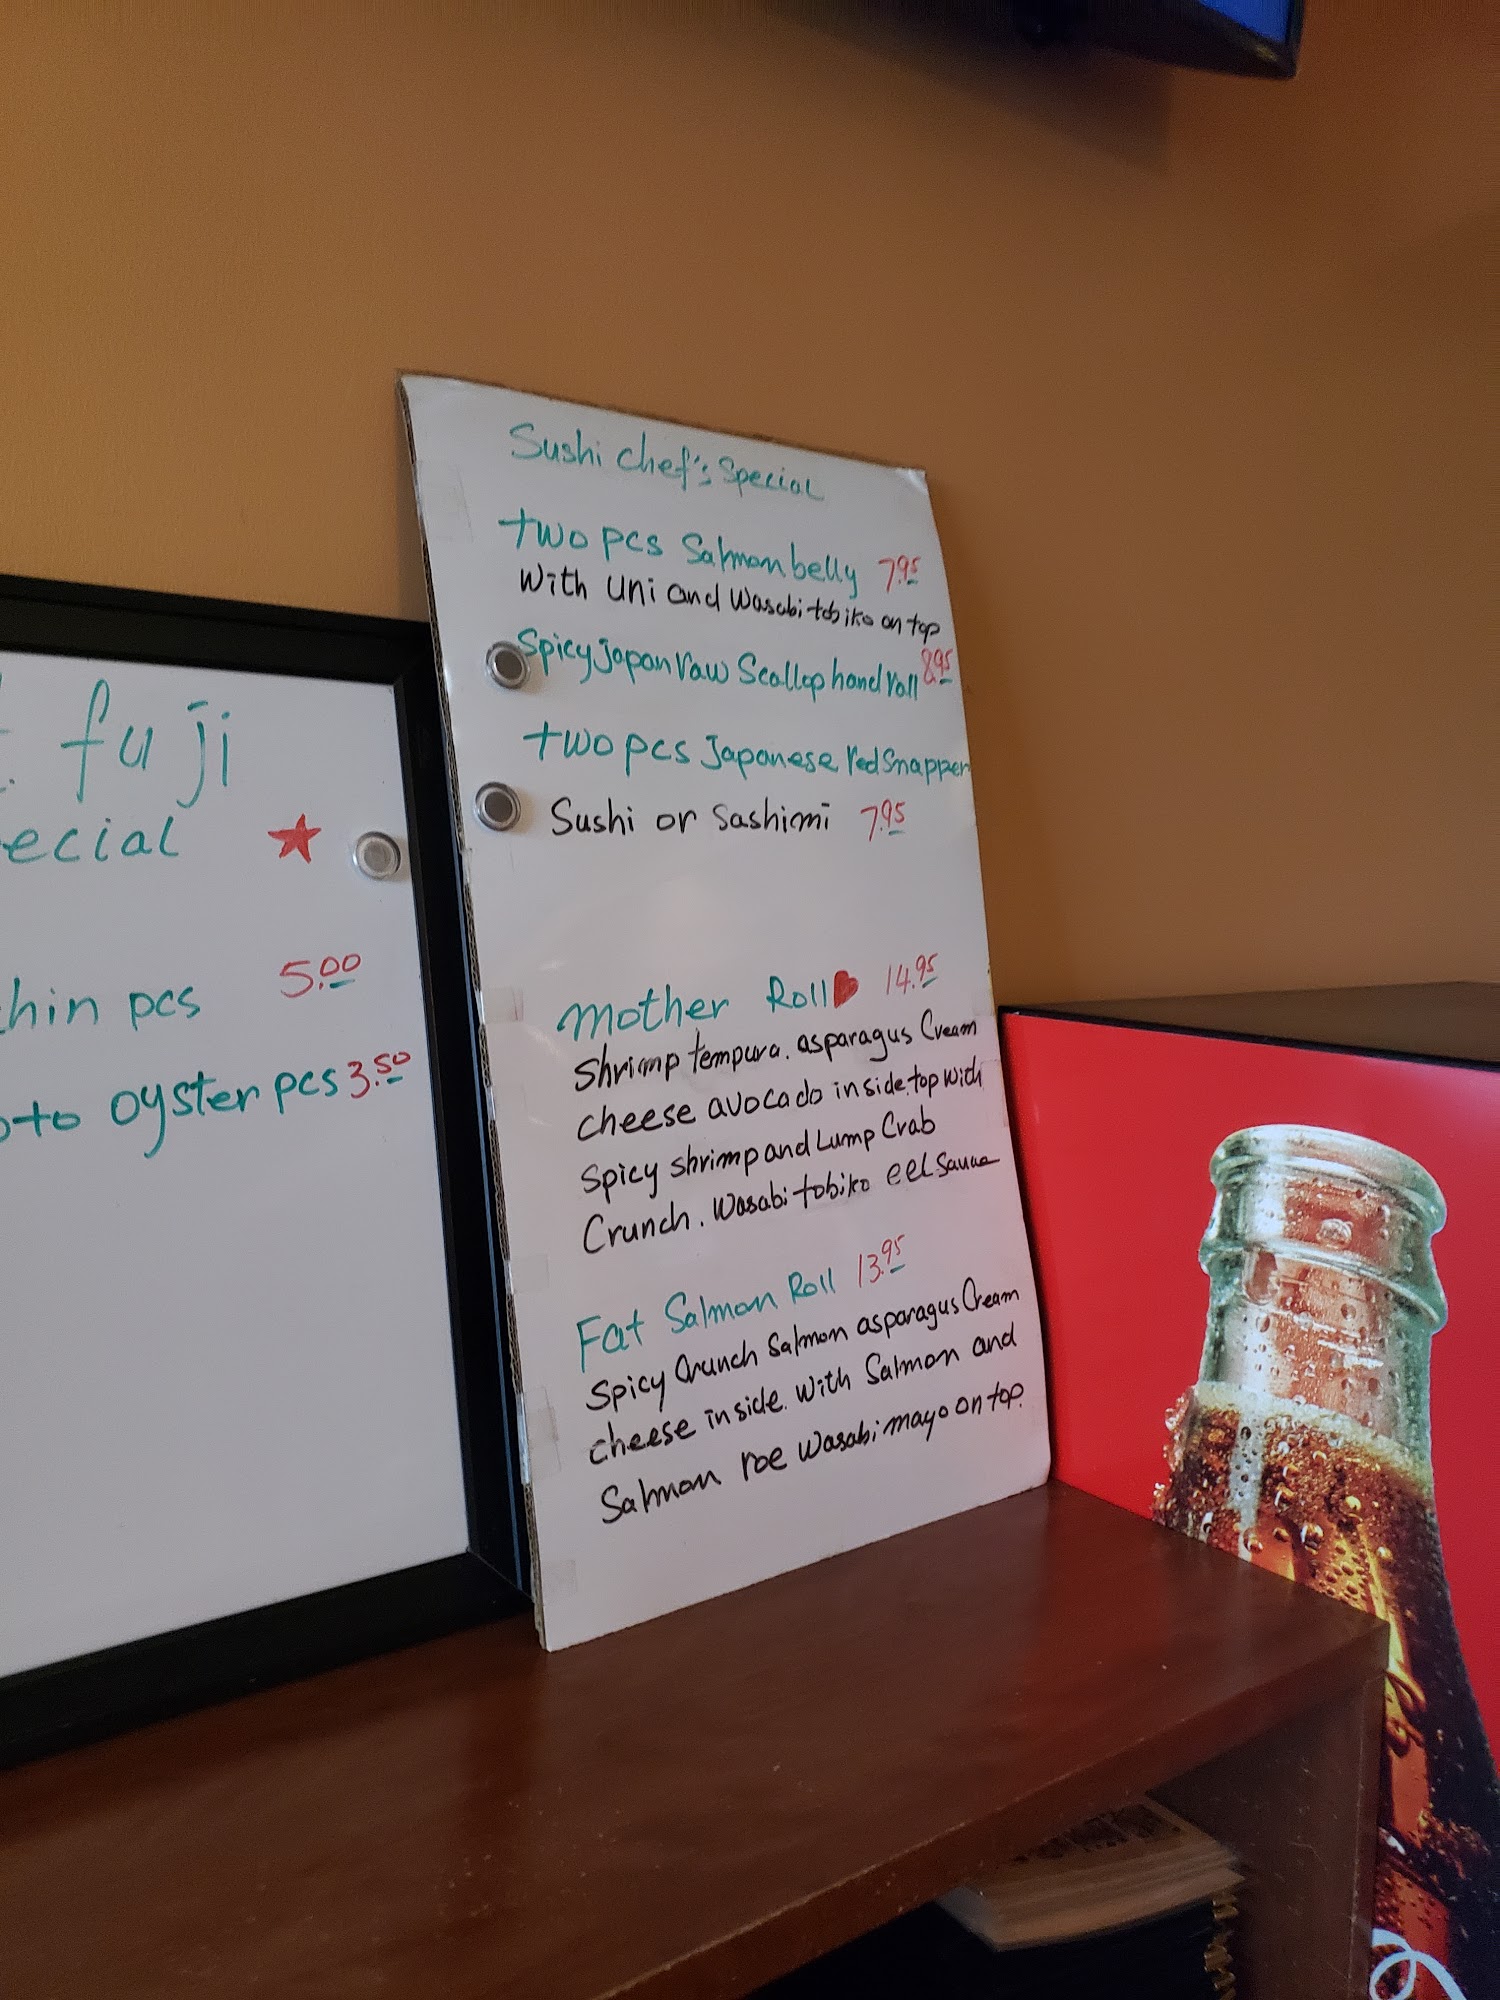 fuji
ecial
hin pcs 5.00
oto oyster pcs 3.50
Sushi chef's Special
two pcs Salmon belly 7.95
With uni and wasabi tobiko on top
Spicy Japan raw Scallop hand roll 8.95
two pcs Japanese red Snapper
Sushi or Sashimi 7.95
Mother Roll 14.95
Shrimp tempura. asparagus Cream
cheese avocado inside. top with
Spicy shrimp and Lump Crab
Crunch. Wasabi tobiko eel sauce
Fat Salmon Roll 13.95
Spicy Crunch Salmon asparagus Cream
cheese inside. With Salmon and
Salmon roe Wasabi mayo on top.